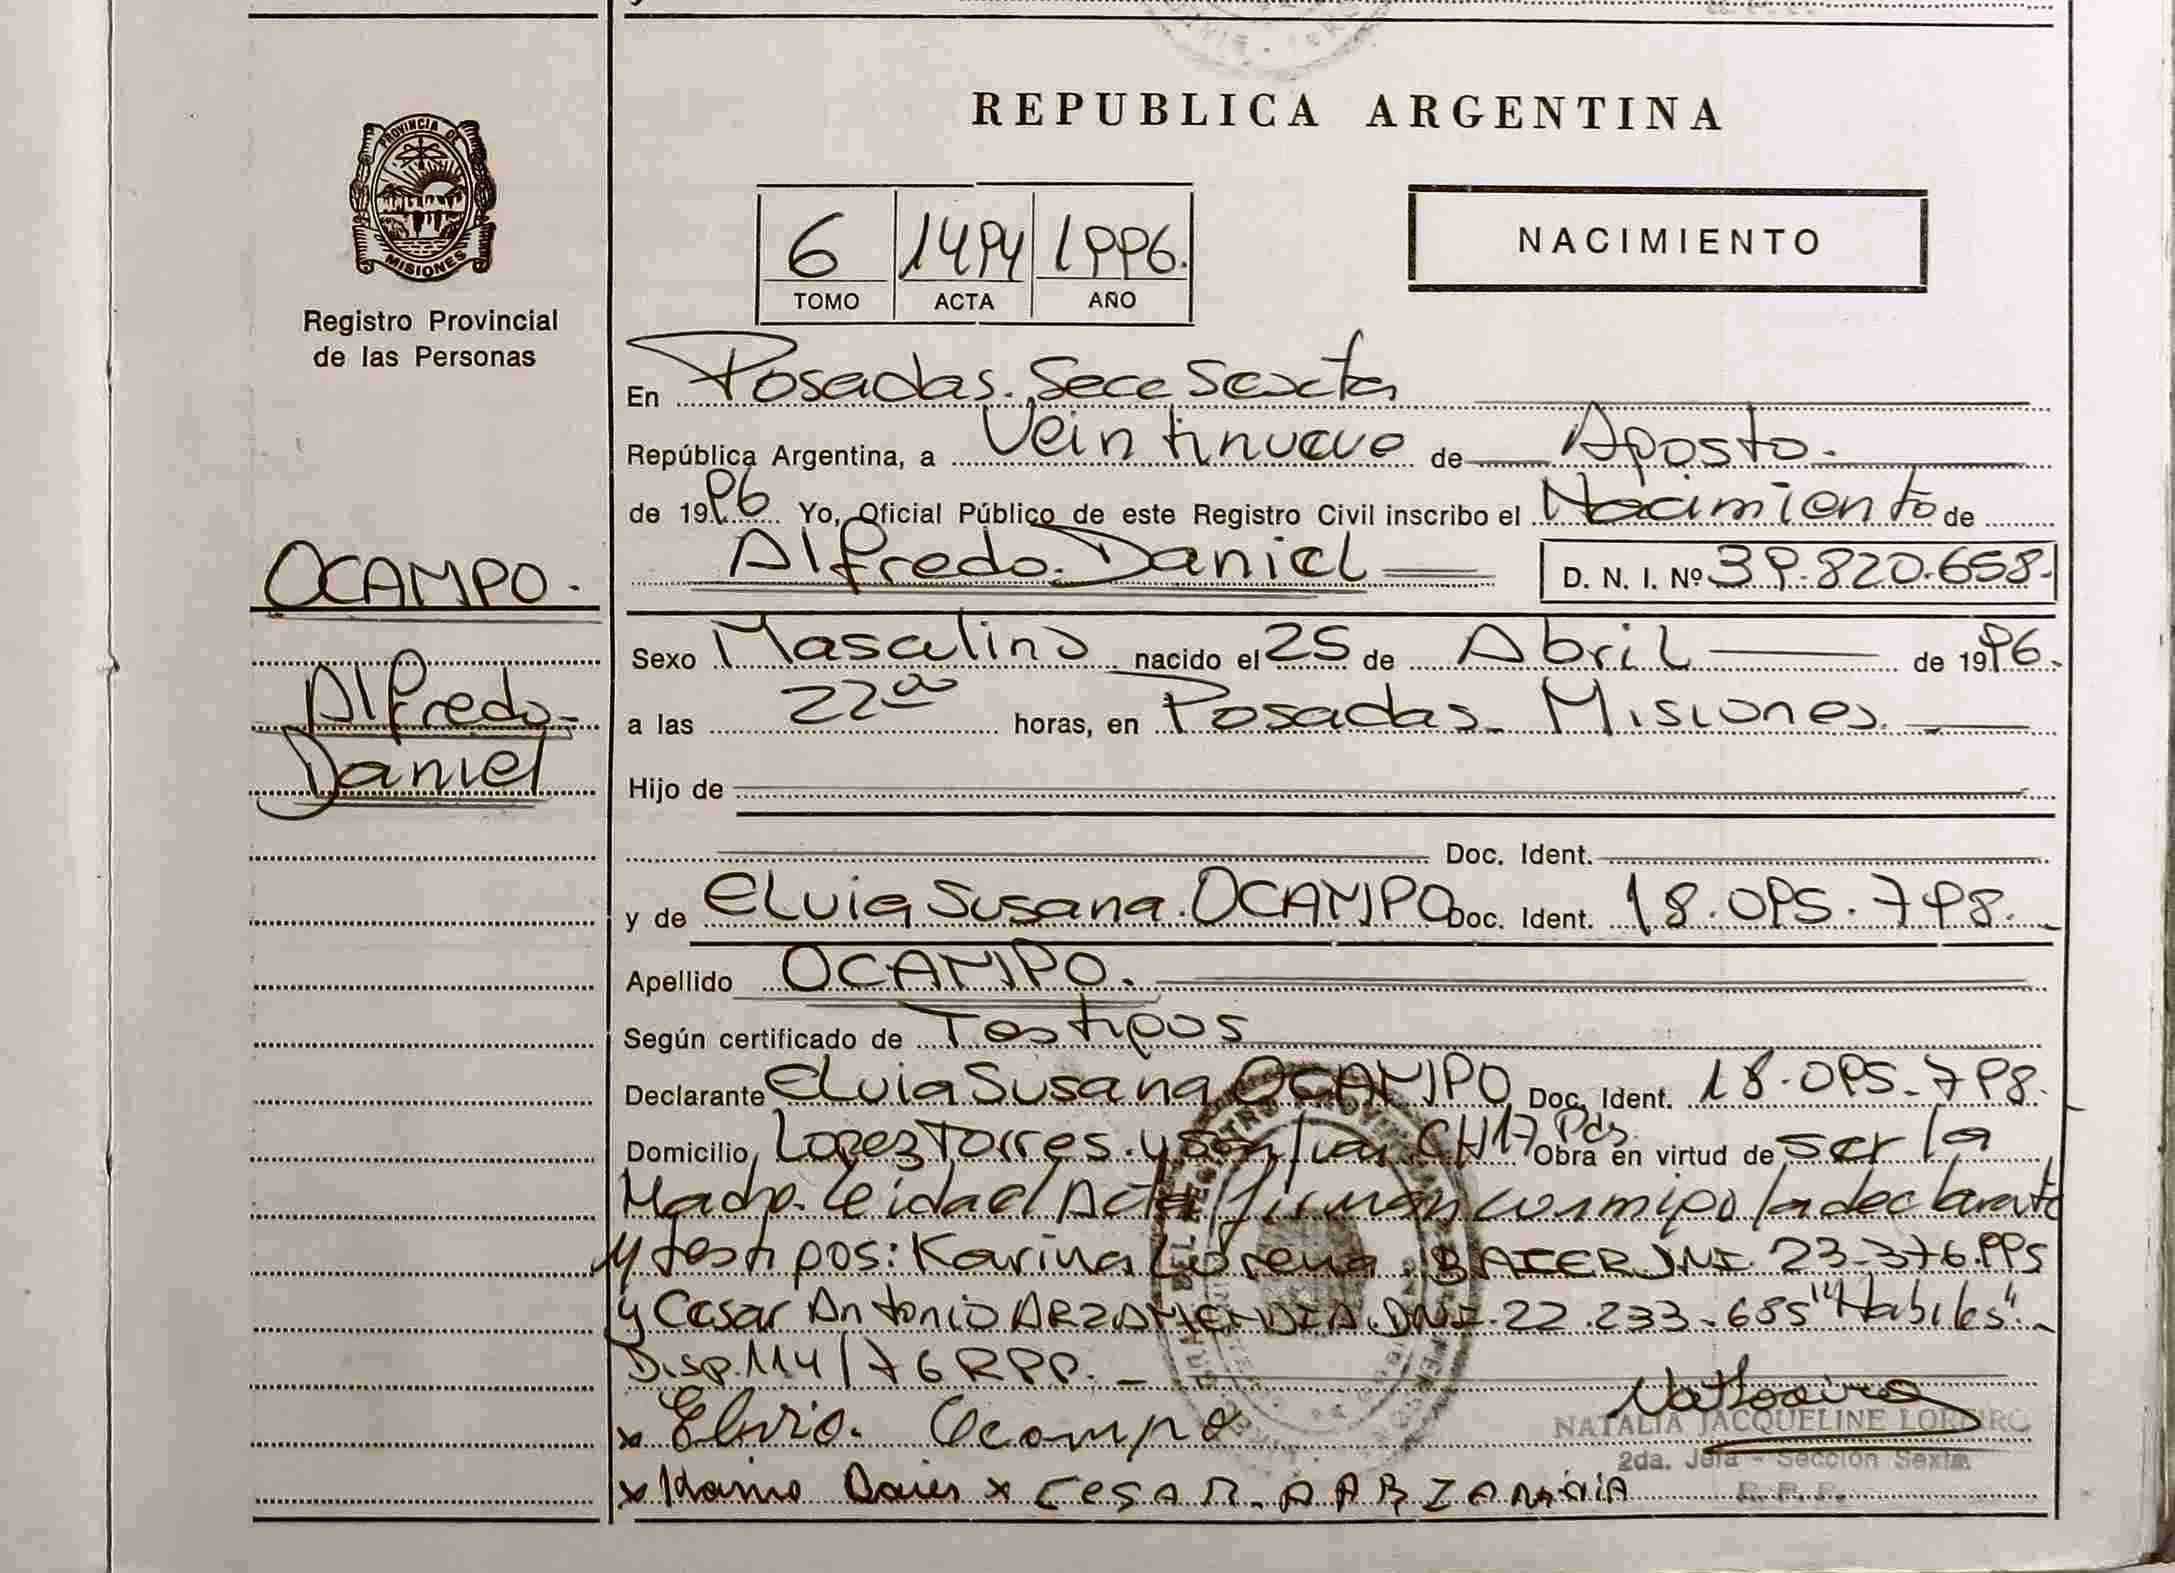 REPUBLICA ARGENTINA
PROVINCIA DE
MISIONES
Registro Provincial
de las Personas
6 1494 1996.
TOMO ACTA AÑO
NACIMIENTO
En Posadas. Secc Sexta
República Argentina, a Veintinueve de Agosto.
de 1996 Yo, Oficial Público de este Registro Civil inscribo el Nacimiento de
Alfredo Daniel D. N. I. Nº 39.820.658.
OCAMPO.
Alfredo
Daniel
Sexo Masculino nacido el 25 de Abril de 1996.
a las 22 00 horas, en Posadas Misiones.
Hijo de
Doc. Ident.
y de Elvia Susana. OCAMPO Doc. Ident. 18.095.798.
Apellido OCAMPO.
Según certificado de Testigos
Declarante Elvia Susana OCAMPO Doc. Ident. 18.095.798.
Domicilio Lopez Torres y CH17 Pds Obra en virtud de ser la
Madre. Leida el Acta firman conmigo la declarante
y testigos: Karina Lorena BAIER DNI. 23.376.995
y Cesar Antonio ARZAMENDIA DNI. 22.233.685 "Habiles".
Disp. 114/76 RPP.
x Elvia. Ocampo
NATALIA JACQUELINE LOREIRO
2da. Jefa - Sección Sexta
R. P. P.
x Karina Baier x CESAR ARZAMENDIA